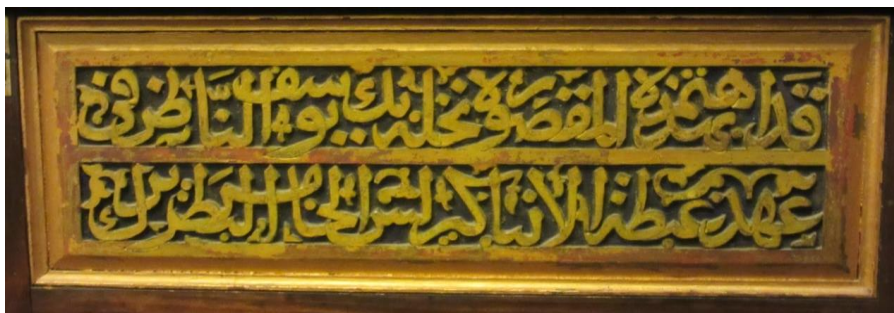 قد اهتم بهذه المقصورة نخله بك يوسف الناظر في
عهد غبطة الانبا كيرلس الخامس البطريرك